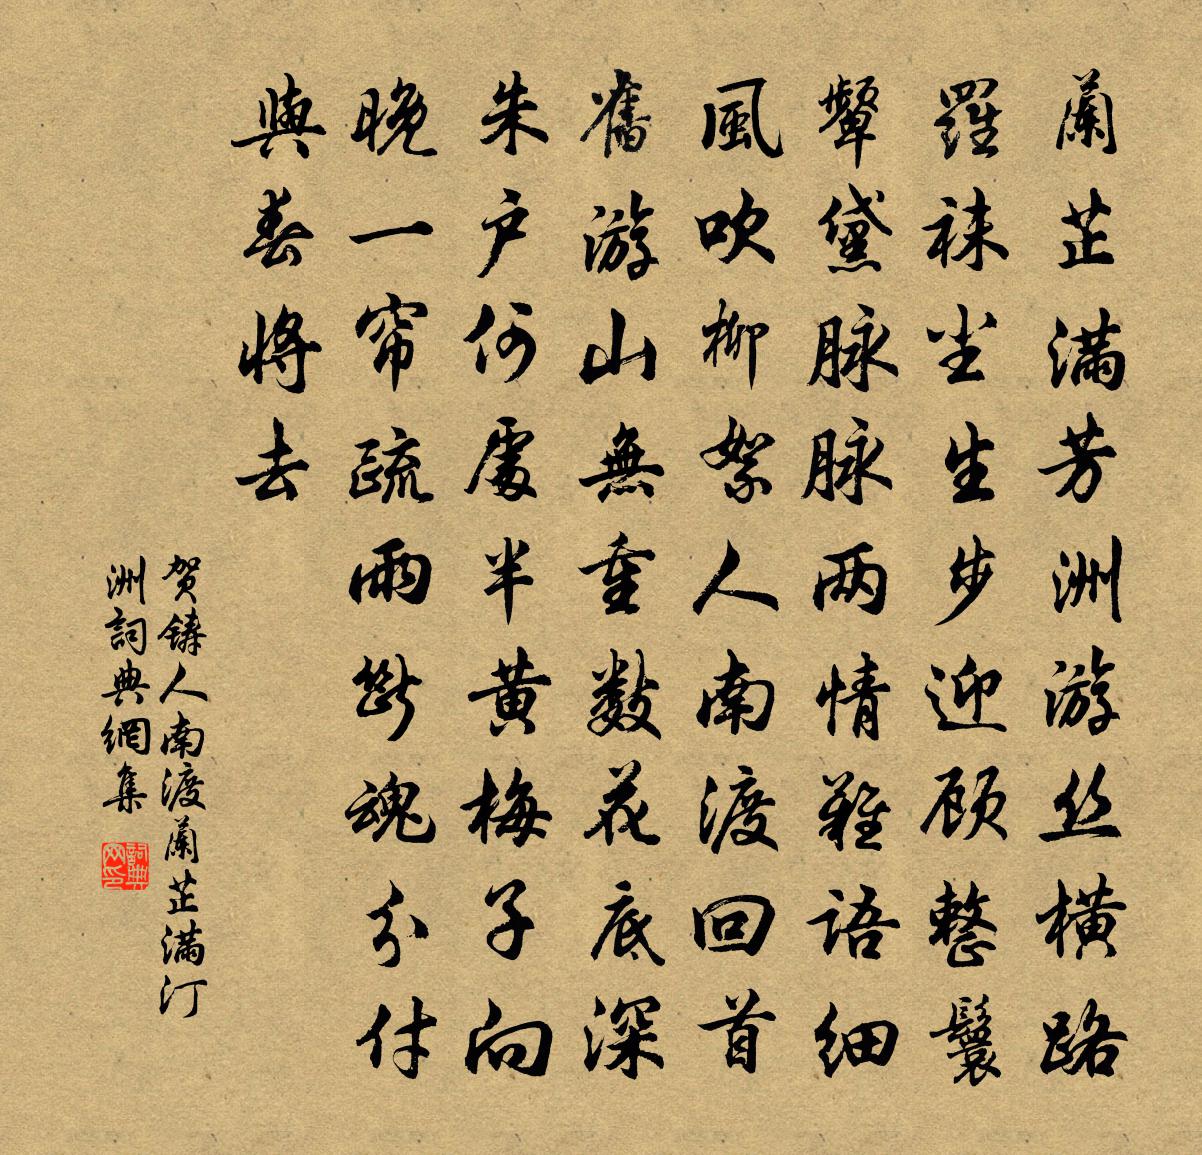 蘭芷满芳洲游丝横路
羅袜尘生步迎顾整鬟
颦黛脉脉两情難語细
風吹柳絮人南渡回首
舊游山無重數花底深
朱户何處半黄梅子向
晚一帘疏雨斷魂分付
與春將去
贺铸人南渡蘭芷满汀
洲詞典網集
詞典
网印